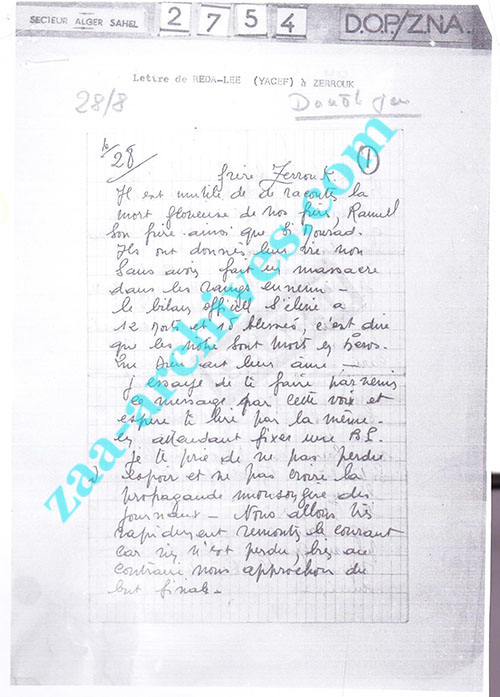 SECTEUR ALGER SAHEL 2754 D.O.P./Z.N.A.
Lettre de REDA-LEE (YACEF) à ZERROUK
28/8
le 28/ 1
frère Zerrouk.
Il est inutile de te raconter la
mort glorieuse de nos frères, Ramel
son frère ainsi que Si Mourad.
Ils ont donnés leur vie non
sans avoir fait un massacre
dans les rangs ennemi -
le bilan officiel s'élève à
12 morts et blessés, c'est dire
que les notre sont morts en héros.
que Dieu ait leur âme -
j'essaye de te faire parvenir
ce message par cette voix et
espère te lire par la même.
en attendant fixer une B.L.
Je te prie de ne pas perdre
espoir et ne pas croire la
propagande mensongère des
journaux - Nous allons très
rapidement remonter le courant
car rien n'est perdu, bien au
contraire nous approchon du
but finale.
zaa-archives.com